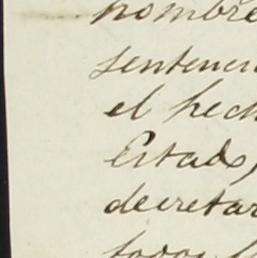 nombre
sentenci
el hech
Estado,
decretar